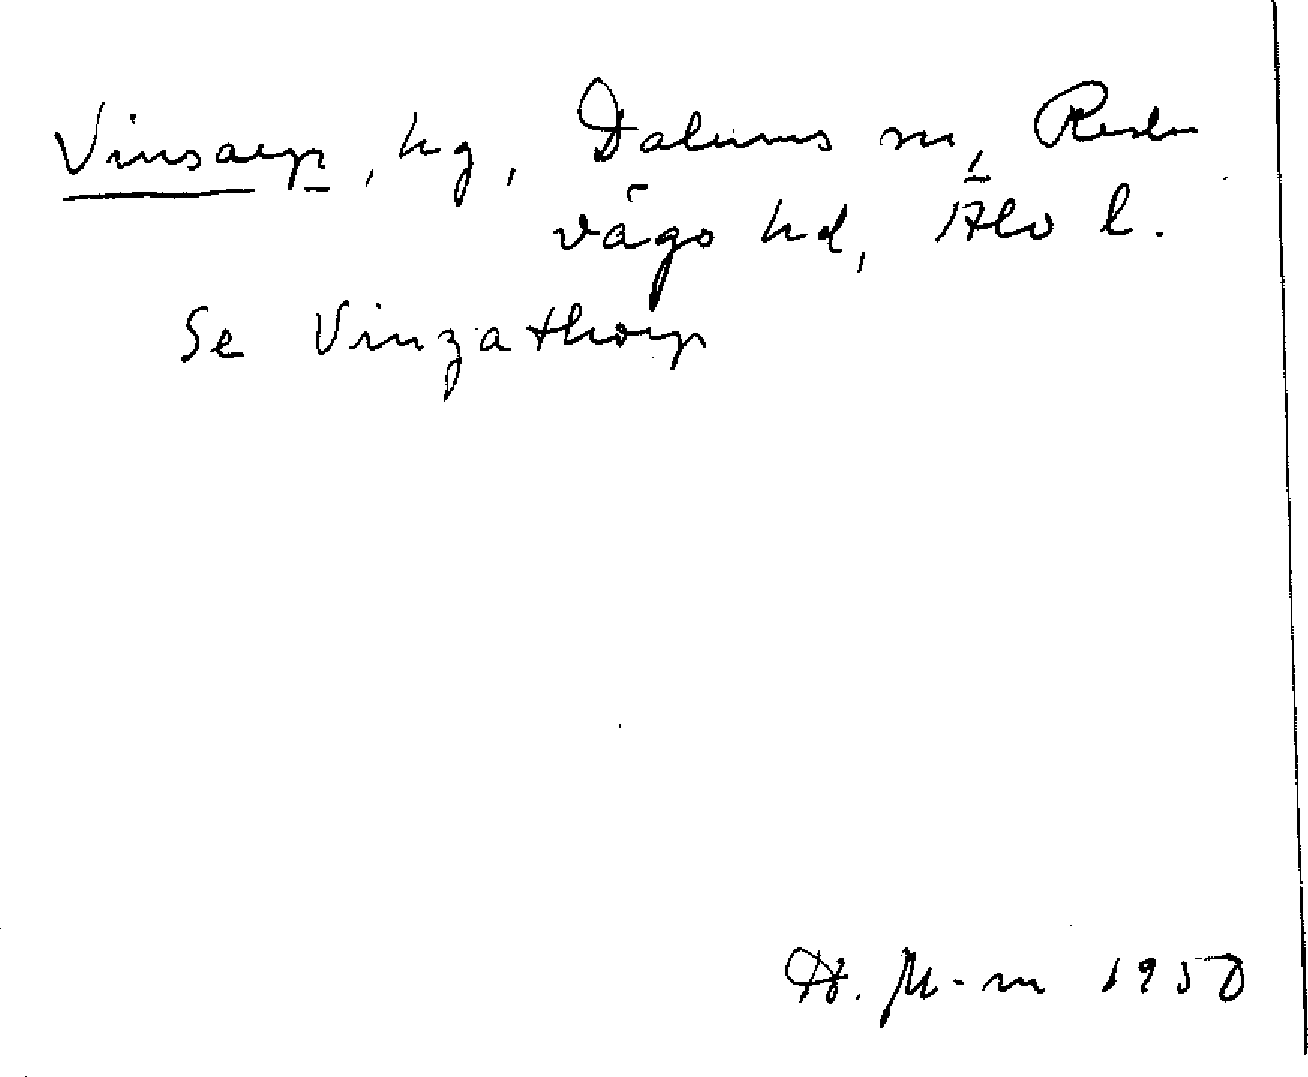 Vinsarp, hg, Dalums sn, Redu
vägs hd, Älvs l.
Se Vinzathorp
M-m 1950